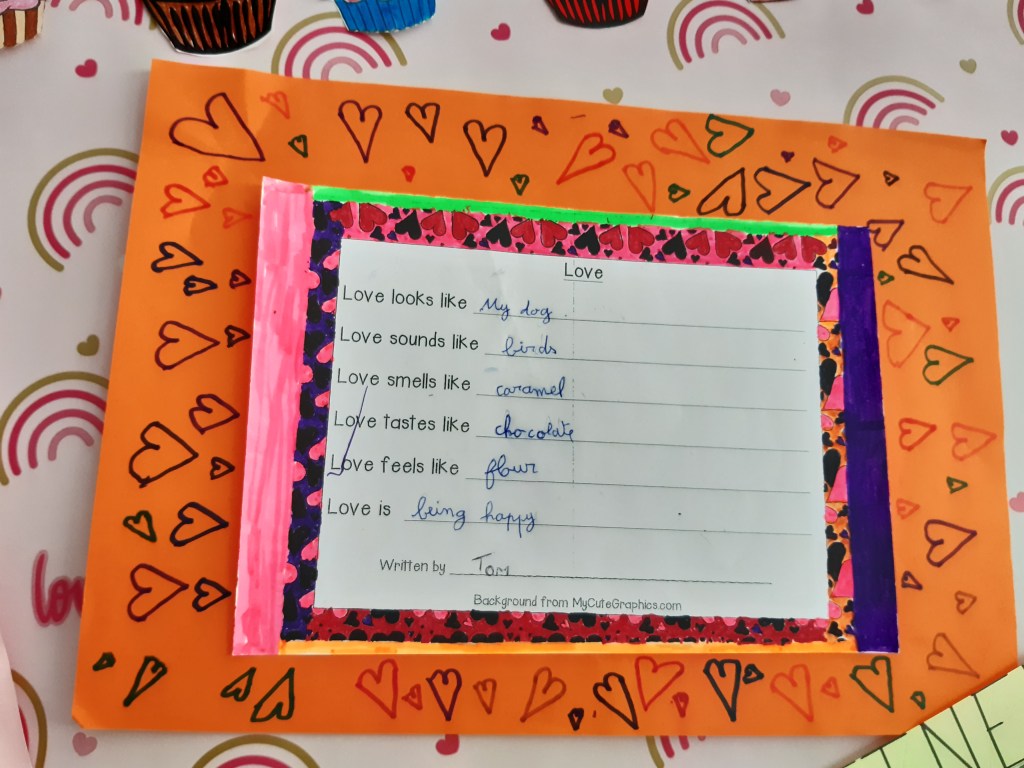 Love
Love looks like My dog.
Love sounds like birds
Love smells like caramel
Love tastes like chocolate
Love feels like flour
Love is being happy
Written by Tom
Background from MyCuteGraphics.com
love
NE